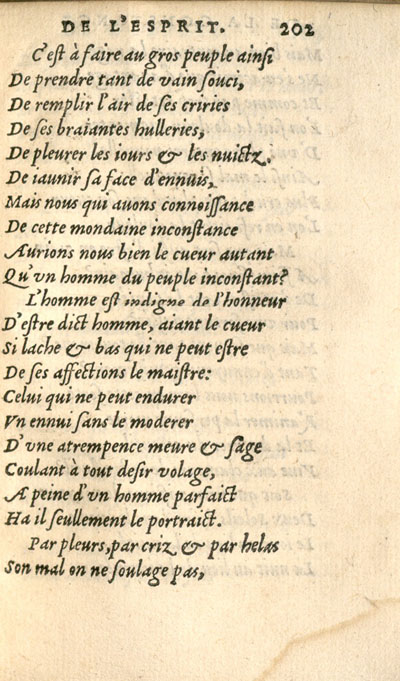 DE L'ESPRIT. 202
C'est à faire au gros peuple ainsi
De prendre tant de vain souci,
De remplir l'air de ses criries
De ses braiantes hulleries,
De pleurer les iours & les nuictz,
De iaunir sa face d'ennuis,
Mais nous qui auons connoissance
De cette mondaine inconstance
Aurions nous bien le cueur autant
Qu'vn homme du peuple inconstant?
L'homme est indigne de l'honneur
D'estre dict homme, aiant le cueur
Si lache & bas qui ne peut estre
De ses affections le maistre:
Celui qui ne peut endurer
Vn ennui sans le moderer
D'vne atrempence meure & sage
Coulant à tout desir volage,
A peine d'vn homme parfaict
Ha il seullement le portraict.
Par pleurs, par criz & par helas
Son mal on ne soulage pas,